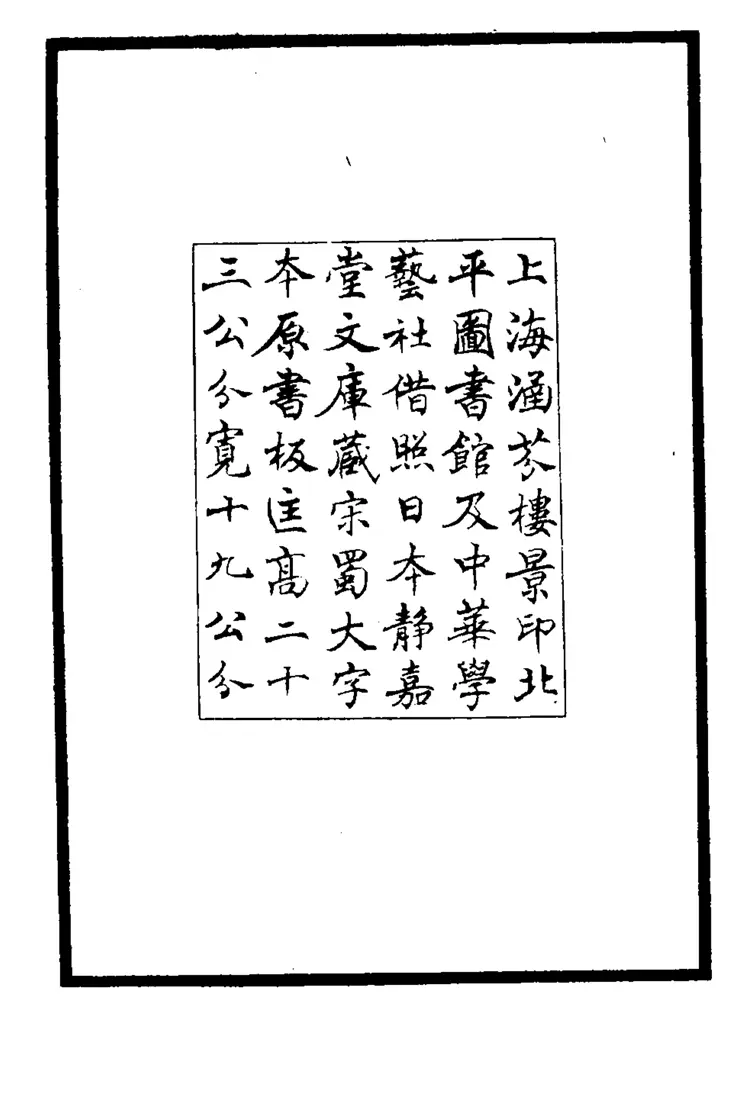 上海涵芬樓景印北
平圖書館及中華學
藝社借照日本靜嘉
堂文庫藏宋蜀大字
本原書板匡高二十
三公分寬十九公分